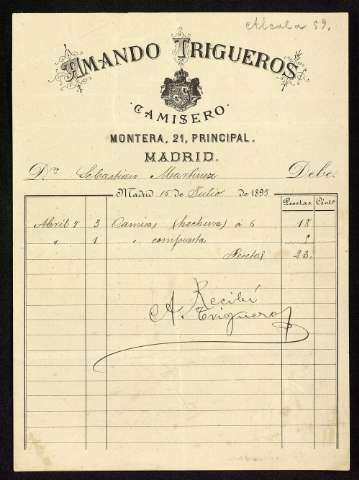 Alcala 59,
AMANDO TRIGUEROS
CAMISERO
MONTERA, 21, PRINCIPAL.
MADRID.
Dn Sebastian Martinez Debe.
Madrid 15 de Julio de 1895
Pesetas Cénts
Abril 7 3 Camisas (hechuras) á 6 18
" 1 " compuesta
Pesetas 23
Recibí
A. Trigueros